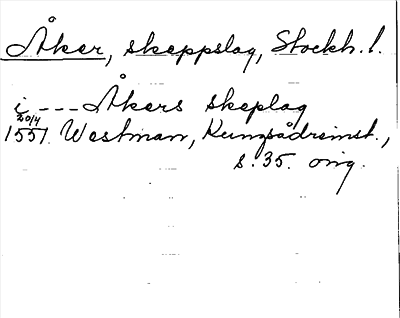 Åker, skeppslag, Stockh. l.
i --- Åkers skeplag
20/4
1551. Westman, Kungsådreinst.,
s. 35. orig.